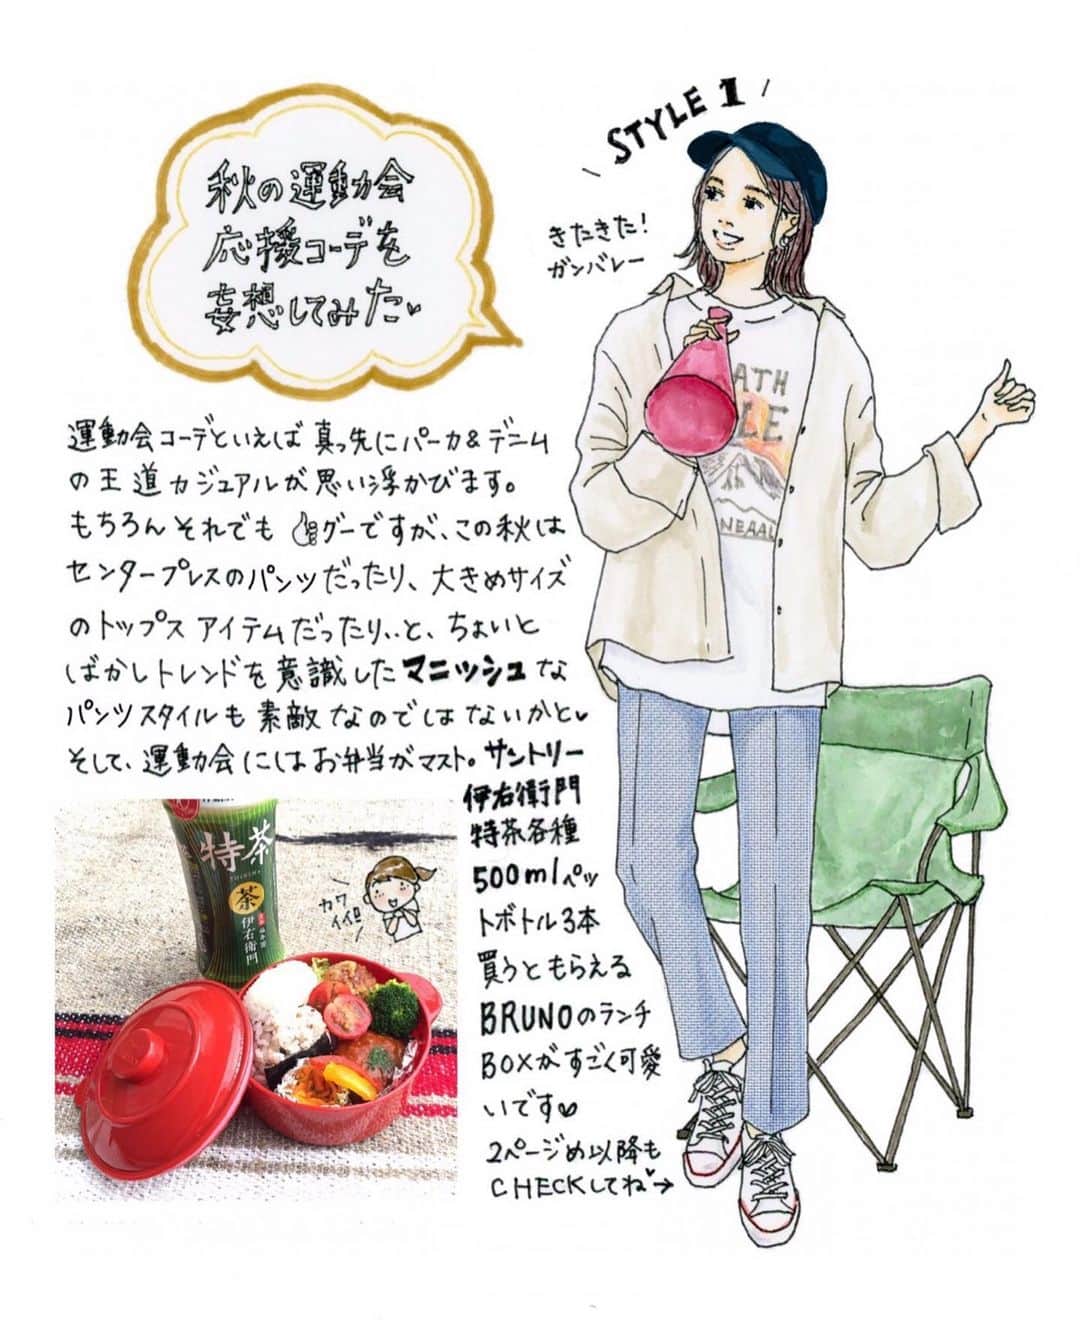 秋の運動会
応援コーデを
妄想してみた♥
STYLE 1
きたきた!
ガンバレー
運動会コーデといえば真っ先にパーカ&デニム
の王道カジュアルが思い浮かびます。
もちろんそれでも👍グーですが、この秋は
センタープレスのパンツだったり、大きめサイズ
のトップスアイテムだったり、、と、ちょいと
ばかしトレンドを意識したマニッシュな
パンツスタイルも素敵なのではないかと♥
そして、運動会にはお弁当がマスト。サントリー
伊右衛門
特茶各種
500mlペッ
トボトル3本
買うともらえる
BRUNOのランチ
BOXがすごく可愛
いです♡
2ページめ以降も
CHECKしてね♥→
ATH
LE
NEAAL
特茶
TOKUCHA
茶
伊右衛門
カワ
イイ